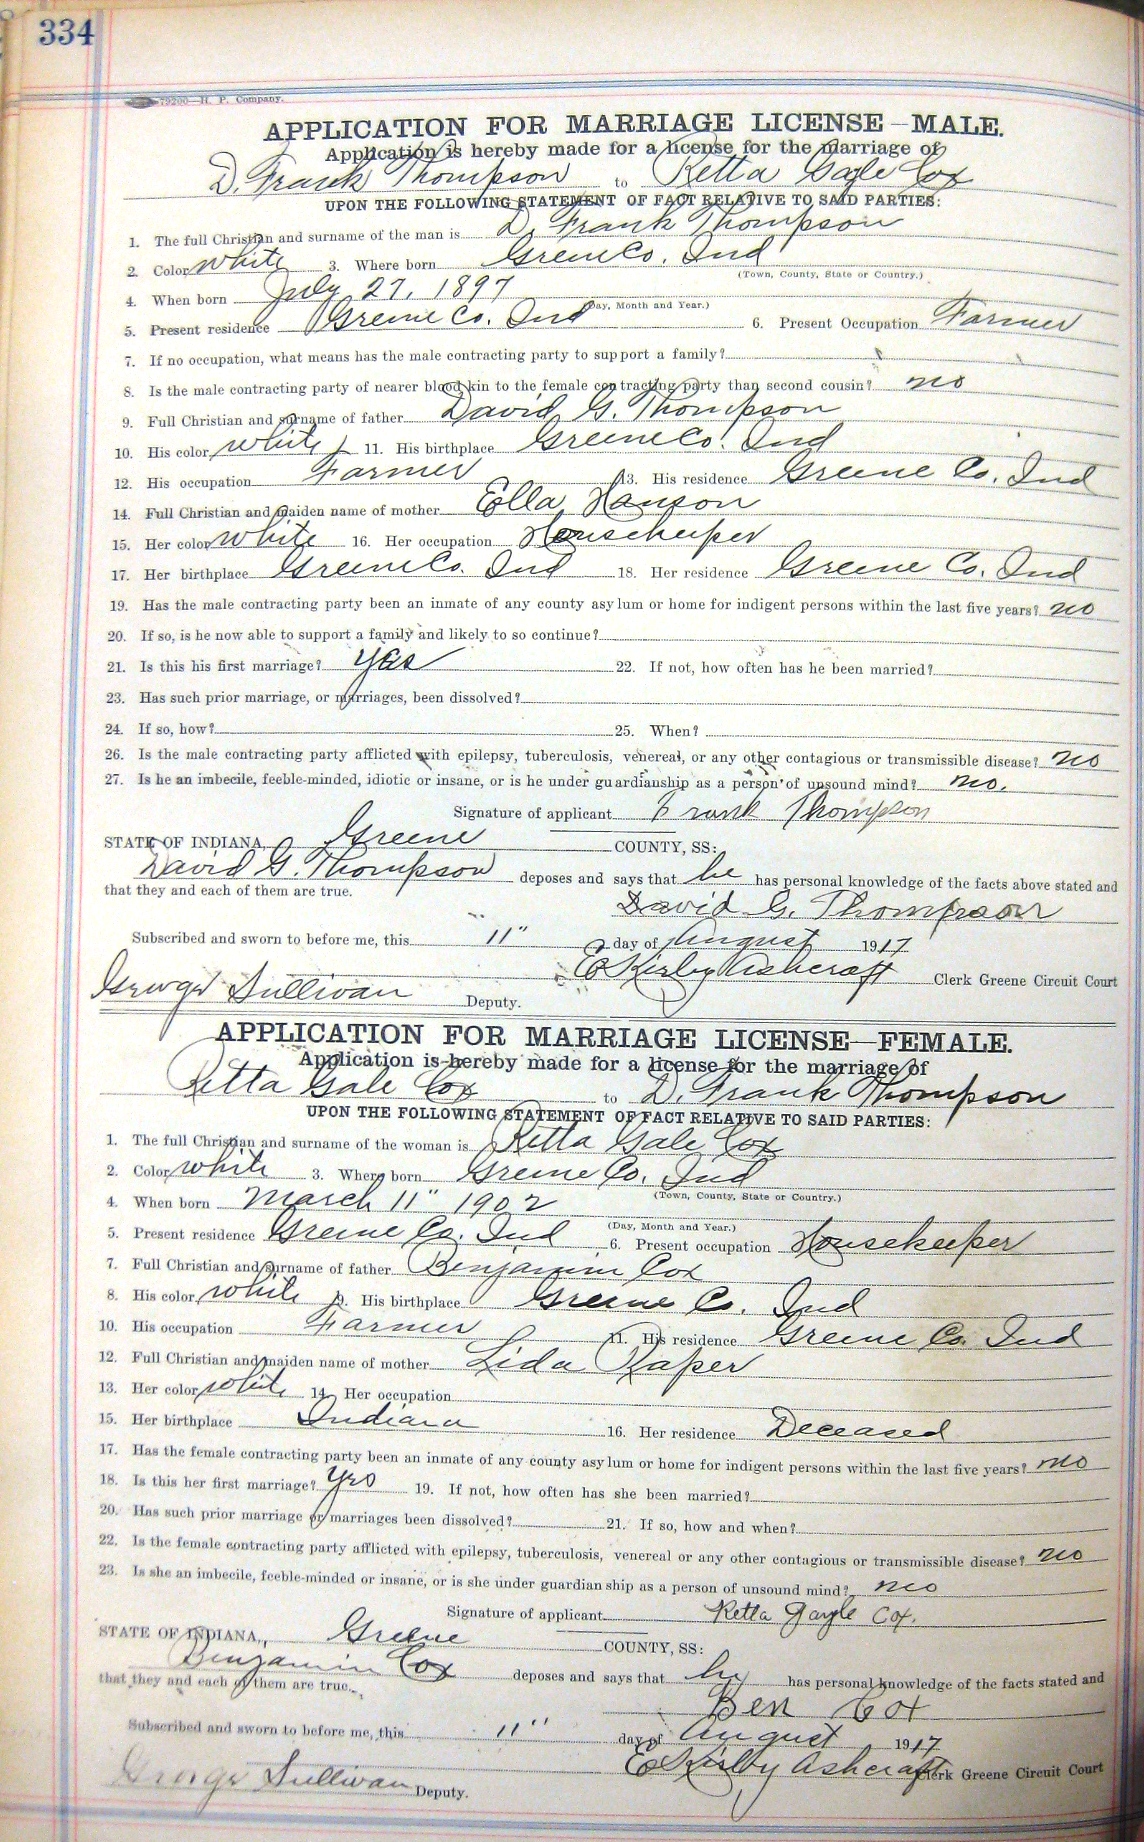 334
79200—H. P. Company.
APPLICATION FOR MARRIAGE LICENSE—MALE.
Application is hereby made for a license for the marriage of
D. Frank Thompson to Retta Gale Cox
UPON THE FOLLOWING STATEMENT OF FACT RELATIVE TO SAID PARTIES:
1. The full Christian and surname of the man is D. Frank Thompson
2. Color white 3. Where born Greene Co. Ind
(Town, County, State or Country.)
4. When born July 27, 1897
(Day, Month and Year.)
5. Present residence Greene Co. Ind 6. Present Occupation Farmer
7. If no occupation, what means has the male contracting party to support a family?
8. Is the male contracting party of nearer blood kin to the female contracting party than second cousin? no
9. Full Christian and surname of father David G. Thompson
10. His color white 11. His birthplace Greene Co. Ind
12. His occupation Farmer 13. His residence Greene Co. Ind
14. Full Christian and maiden name of mother Ella Hanson
15. Her color white 16. Her occupation Housekeeper
17. Her birthplace Greene Co. Ind 18. Her residence Greene Co. Ind
19. Has the male contracting party been an inmate of any county asylum or home for indigent persons within the last five years? no
20. If so, is he now able to support a family and likely to so continue?
21. Is this his first marriage? yes 22. If not, how often has he been married?
23. Has such prior marriage, or marriages, been dissolved?
24. If so, how? 25. When?
26. Is the male contracting party afflicted with epilepsy, tuberculosis, venereal, or any other contagious or transmissible disease? no
27. Is he an imbecile, feeble-minded, idiotic or insane, or is he under guardianship as a person of unsound mind? no.
Signature of applicant Frank Thompson
STATE OF INDIANA, Greene COUNTY, SS:
David G. Thompson deposes and says that he has personal knowledge of the facts above stated and
that they and each of them are true.
David G. Thompson
Subscribed and sworn to before me, this 11" day of August 1917
E Kirby Ashcraft Clerk Greene Circuit Court
George Sullivan Deputy.
APPLICATION FOR MARRIAGE LICENSE—FEMALE.
Application is hereby made for a license for the marriage of
Retta Gale Cox to D. Frank Thompson
UPON THE FOLLOWING STATEMENT OF FACT RELATIVE TO SAID PARTIES:
1. The full Christian and surname of the woman is Retta Gale Cox
2. Color white 3. Where born Greene Co. Ind
(Town, County, State or Country.)
4. When born March 11" 1902
(Day, Month and Year.)
5. Present residence Greene Co. Ind 6. Present occupation Housekeeper
7. Full Christian and surname of father Benjamin Cox
8. His color white 9. His birthplace Greene Co. Ind
10. His occupation Farmer 11. His residence Greene Co. Ind
12. Full Christian and maiden name of mother Lida Raper
13. Her color white 14. Her occupation
15. Her birthplace Indiana 16. Her residence Deceased
17. Has the female contracting party been an inmate of any county asylum or home for indigent persons within the last five years? no
18. Is this her first marriage? yes 19. If not, how often has she been married?
20. Has such prior marriage or marriages been dissolved? 21. If so, how and when?
22. Is the female contracting party afflicted with epilepsy, tuberculosis, venereal or any other contagious or transmissible disease? no
23. Is she an imbecile, feeble-minded or insane, or is she under guardianship as a person of unsound mind? no
Signature of applicant Retta Gayle Cox.
STATE OF INDIANA, Greene COUNTY, SS:
Benjamin Cox deposes and says that he has personal knowledge of the facts stated and
that they and each of them are true.
Ben Cox
Subscribed and sworn to before me, this 11" day of August 1917
E Kirby Ashcraft Clerk Greene Circuit Court
George Sullivan Deputy.